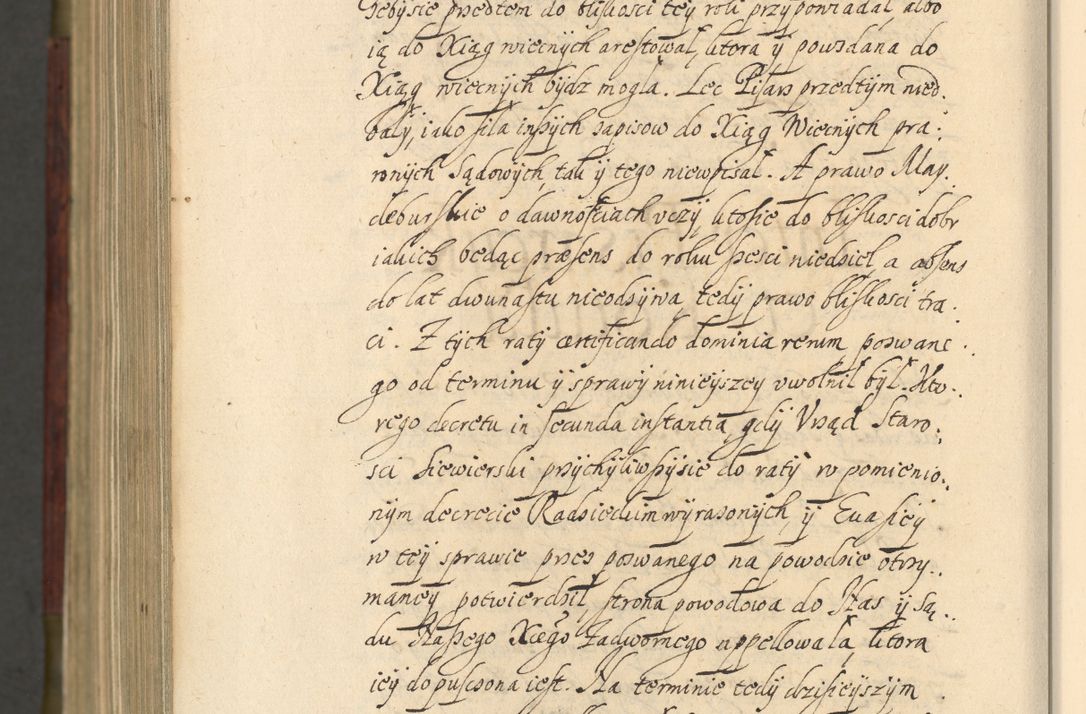 żeby sie przedtem do bliskosci tey roli przypowiadał albo
ią do Xiąg wiecznych arestował, ktora y powzdana do
Xiąg wiecznych bydz mogła. Lec Pisarz przedtym nied:
bały, iako siła inszych zapisow do Xiąg Wiecznych pra:
wnych Sądowych, tak y tego niewpisał. A prawo May:
deburskie o dawnosciach vczy ktosie do bliskosci dobr
iakich będąc præsens do roku szesci niedziel, a absens
do lat dwunastu nieodzywa tedy prawo bliskosci tra:
ci. Z tych raty certificando dominia rerum pozwane:
go od terminu y sprawy ninieyszey vwolnił był. Kto:
rego decretu in secunda instantia, gdy Vrząd Staro:
sci Siewierski przychyliwszysie do raty w pomienio:
nym decrecie Radzieckim wyrazonych, y Euasiey
w tey sprawie przez pozwanego na powodzie otrzy:
maney potwierdził, strona powodowa do Nas y Są:
du Naszego Xcego Zadwornego appellowała, ktora
iey dopuszona iest. Na terminie tedy dzisieyszym